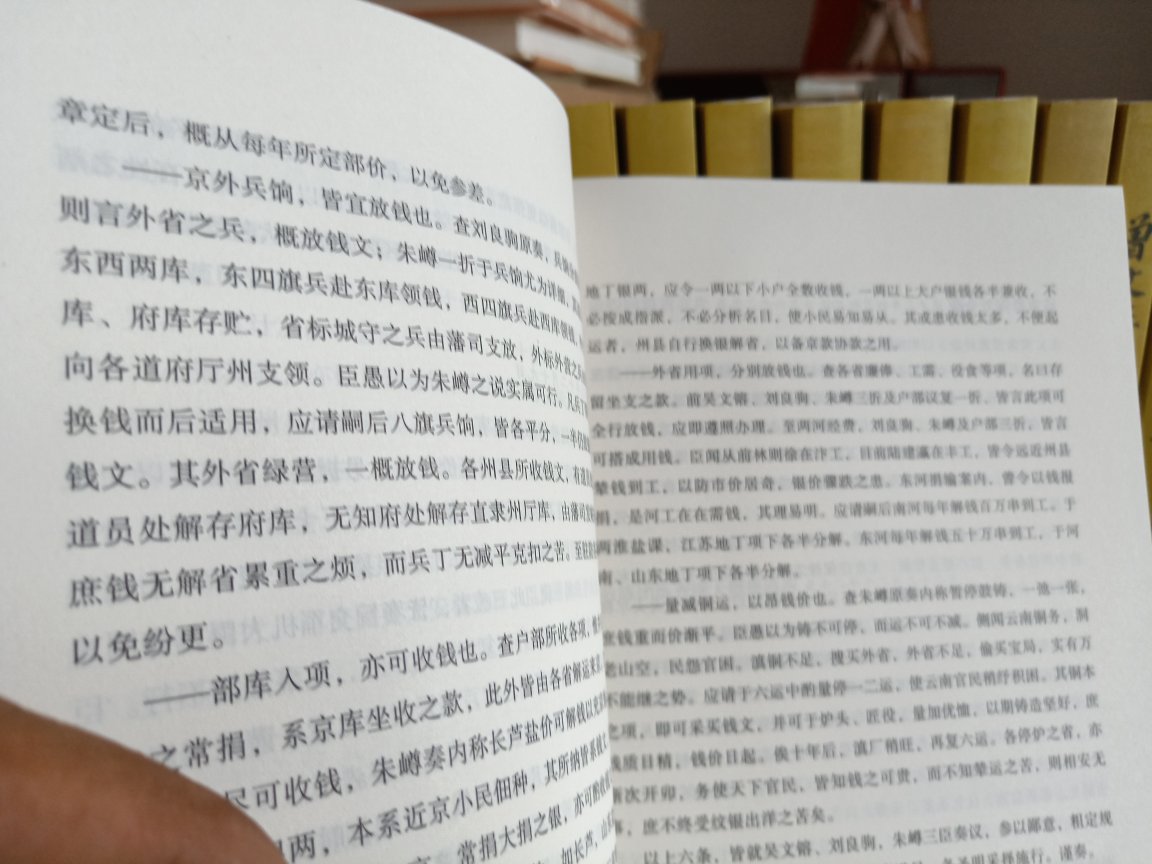 章定后，概从每年所定部价，以免参差。
——京外兵饷，皆宜放钱也。查刘良驹原奏，兵饷
则言外省之兵，概放钱文；朱嶟一折于兵饷尤为详细，
东西两库，东四旗兵赴东库领钱，西四旗兵赴西库领钱，
库、府库存贮，省标城守之兵由藩司支放，外标外营之
向各道府厅州支领。臣愚以为朱嶟之说实属可行。凡兵丁
换钱而后适用，应请嗣后八旗兵饷，皆各平分，一半
钱文。其外省绿营，一概放钱。各州县所收钱文，有道
道员处解存府库，无知府处解存直隶州厅库，由藩司
庶钱无解省累重之烦，而兵丁无减平克扣之苦。至
以免纷更。
——部库入项，亦可收钱也。查户部所收各项，
之常捐，系京库坐收之款，此外皆由各省解运来
尽可收钱，朱嶟奏内称长芦盐价可解钱以充
两，本系近京小民佃种，其所纳皆系钱文
常捐大捐之银，亦可酌收
如长芦、山
地丁银两，应令一两以下小户全数收钱，一两以上大户银钱各半兼收，不
必按成指派，不必分析名目，使小民易知易从。其或患收钱太多，不便起
运者，州县自行换银解省，以备章款协款之用。
——外省用项，分别放钱也。查各省廉俸、工需、役食等项，名曰存
留坐支之款。前吴文镕、刘良驹、朱嶟三折及户部议复一折，皆言此项可
全行放钱，应即遵照办理。至两河经费，刘良驹、朱嶟及户部三折，皆言
可搭成用钱。臣闻从前林则徐在汴工，目前陆建瀛在丰工，皆令远近州县
辇钱到工，以防市价居奇，银价骤跌之患。东河捐输案内，曾令以钱报
捐，是河工在在需钱，其理易明。应请嗣后南河每年解钱百万串到工。于
两淮盐课，江苏地丁项下各半分解。东河每年解钱五十万串到工，于河
南、山东地丁项下各半分解。
——量减铜运，以昂钱价也。查朱嶟原奏内称暂停鼓铸，一弛一张，
庶钱重而价渐平。臣愚以为铸不可停，而运不可不减。侧闻云南铜务，洞
老山空，民怨官困。滇铜不足，搜买外省，外省不足，偷买宝局，实有万
不能继之势。应请于六运中酌量停一二运，使云南官民稍纾积困。其铜本
之项，即可采买钱文，并可于炉头、匠役，量加优恤，以期铸造坚好，庶
钱质日精，钱价日起。俟十年后，滇厂稍旺，再复六运。各停炉之省，亦
渐次开卯，务使天下官民，皆知钱之可贵，而不知辇运之苦，则相安无
事，庶不终受纹银出洋之苦矣。
以上六条，皆就吴文镕、刘良驹、朱嶟三臣奏议，参以鄙意，粗定规